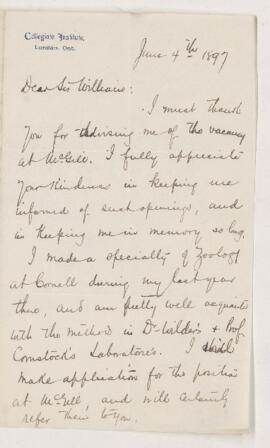 Collegiate Institute,
London, Ont.
June 4th 1897
Dear Sir William:
I must thank
you for advising me of the vacancy
at McGill. I fully appreciate
your kindness in keeping me
informed of such openings, and
in keeping me in memory so long.
I made a specialty of Zoology
at Cornell during my last year
there, and am pretty well acquainted
with the methods in Dr Wilder's & Prof
Comstock's Laboratories. I shall
make application for the position
at McGill and will certainly
refer them to you.